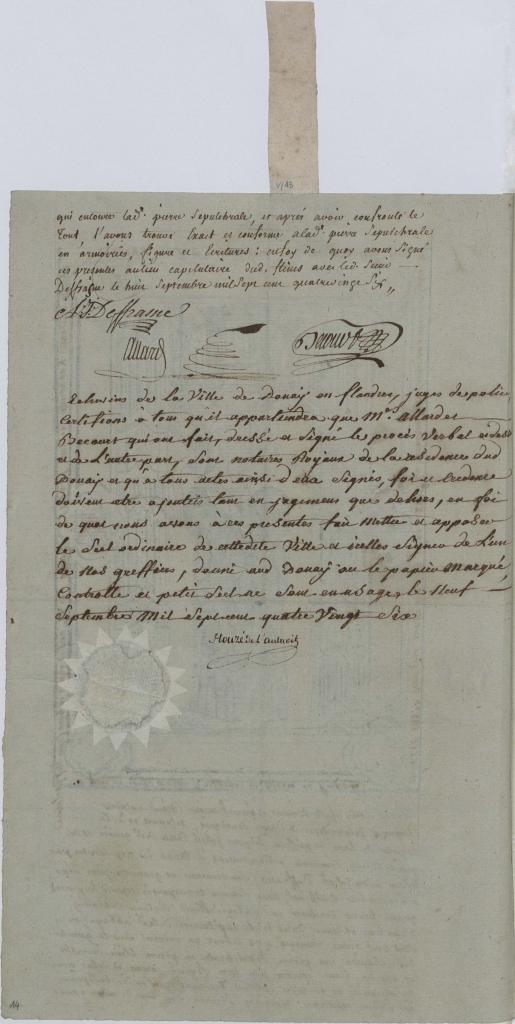 V/13
qui entoure lad.e pierre Sepulchrale, et après avoir confronté le
Tout l'avons trouvé Exact et conforme a lad.e pierre sepulchrale
en armoiries, figure et Ecritures : en foy de quoy avons Signé
ces presentes au lieu capitulaire dud. flines avec led. Sieur
Deffrasne le huit Septembre mil Sept cent quatre vingt Six
Deffrasne
Allard
Echevins de la Ville de Douay en flandres, juges de police
Certifions à tous qu'il appartiendra que M.rs allard et
Becourt qui ont fait, dressé et Signé le procès verbal
et de L'autre part, sont notaires Royaux de la residence dud
Douay et qu'à tous actes ainsi d'eux Signés, foi et Credence
doivent etre ajoutés tant en jugement que dehors, en foi
de quoi nous avons à ces presentes fait Mettre et apposer
le Scel ordinaire de cettedite Ville et icelles Signer de L'un
de Nos greffiers, donné aud Douay ou le papier Marqué,
Controlle et petit Scel ne Sont en usage, le Neuf
Septembre Mil Sept cent quatre Vingt Six
Houzé de l'aulnoit
14